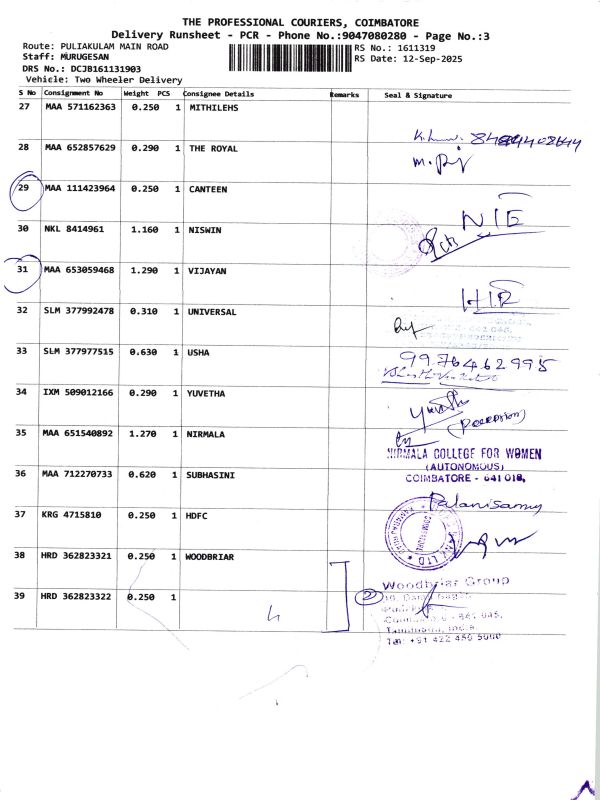 THE PROFESSIONAL COURIERS, COIMBATORE
Delivery Runsheet - PCR - Phone No.:9047080280 - Page No.:3
Route: PULIAKULAM MAIN ROAD RS No.: 1611319
Staff: MURUGESAN RS Date: 12-Sep-2025
DRS No.: DCJB161131903
Vehicle: Two Wheeler Delivery
S No Consignment No Weight PCS Consignee Details Remarks Seal & Signature
27 MAA 571162363 0.250 1 MITHILEHS
28 MAA 652857629 0.290 1 THE ROYAL
29 MAA 111423964 0.250 1 CANTEEN
NIE
30 NKL 8414961 1.160 1 NISWIN
31 MAA 653059468 1.290 1 VIJAYAN
HIR
32 SLM 377992478 0.310 1 UNIVERSAL
33 SLM 377977515 0.630 1 USHA
9976462995
34 IXM 509012166 0.290 1 YUVETHA
Yuvetha
(Reception)
35 MAA 651540892 1.270 1 NIRMALA
NIRMALA COLLEGE FOR WOMEN
(AUTONOMOUS)
COIMBATORE - 641 018.
36 MAA 712270733 0.620 1 SUBHASINI
Palanisamy
37 KRG 4715810 0.250 1 HDFC
38 HRD 362823321 0.250 1 WOODBRIAR
39 HRD 362823322 0.250 1
2
Woodbriar Group
Coimbatore - 641 045.
Tamilnadu, India.
Tel: +91 422 450 5000